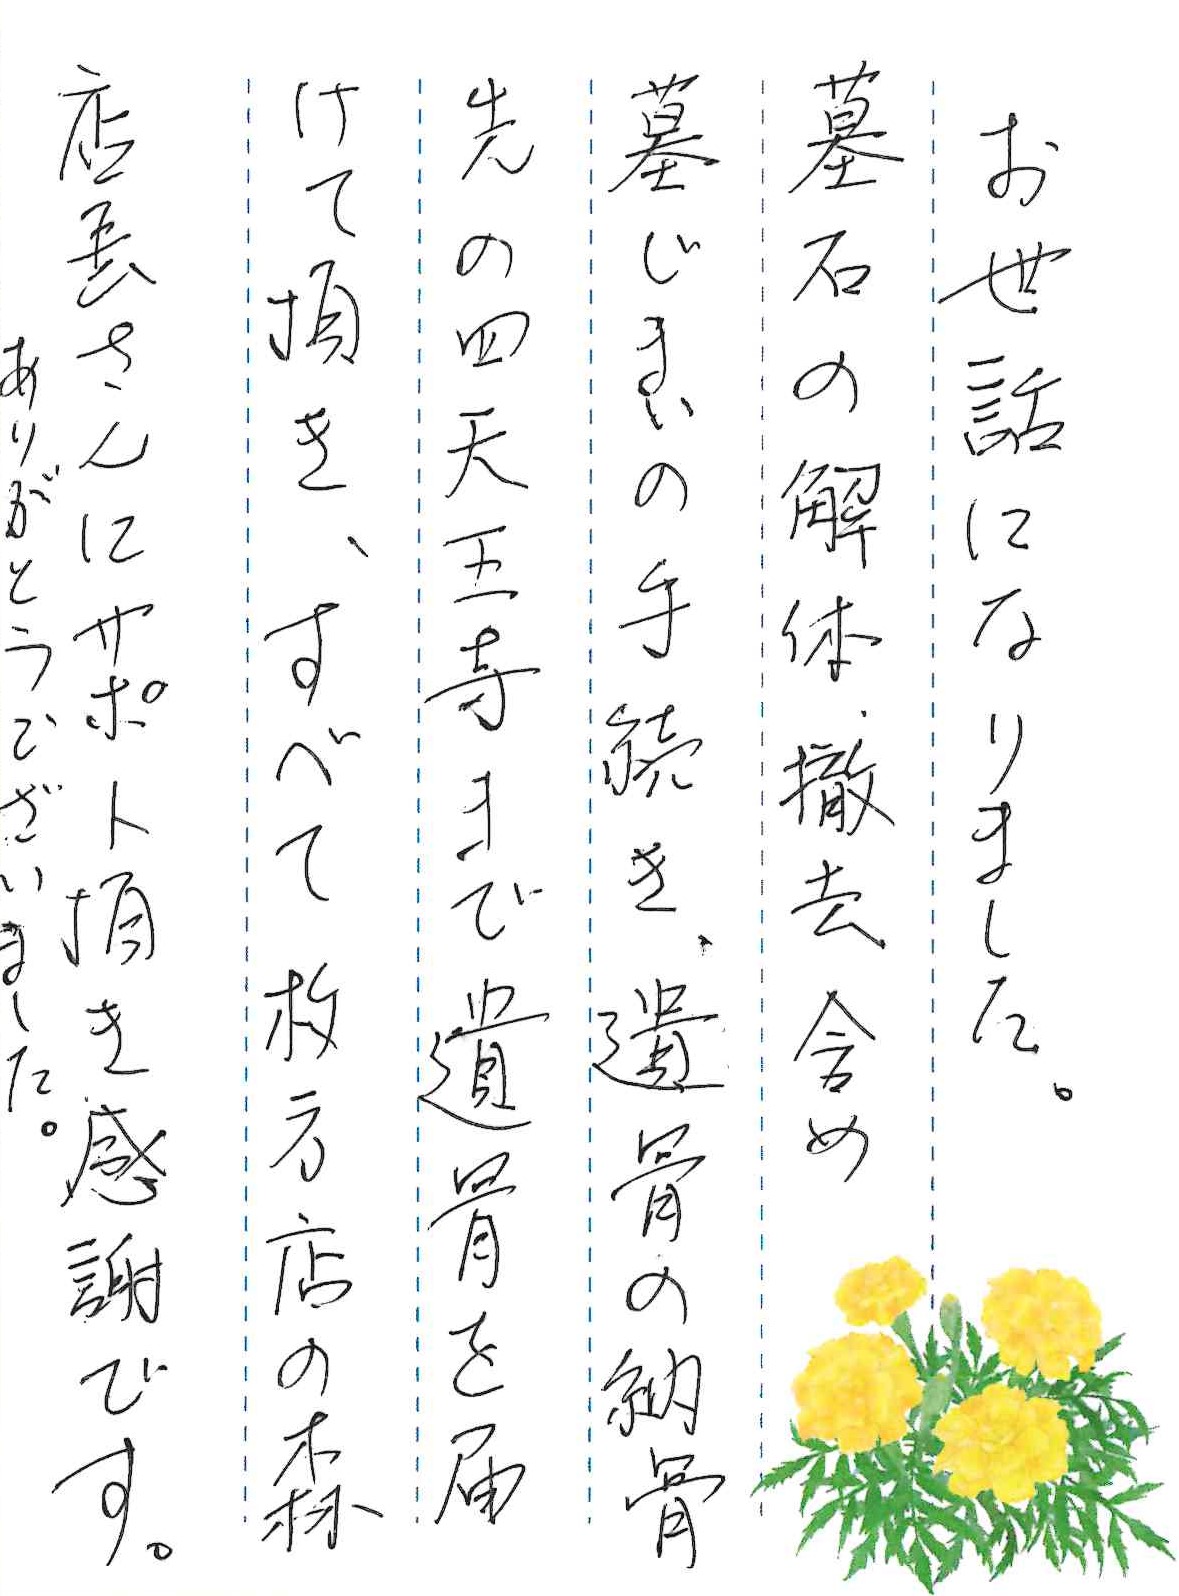 お世話になりました。
墓石の解体、撤去含め
墓じまいの手続き、遺骨の納骨
先の四天王寺まで遺骨を届
けて頂き、すべて枚方店の森
店長さんにサポート頂き感謝です。
ありがとうございました。